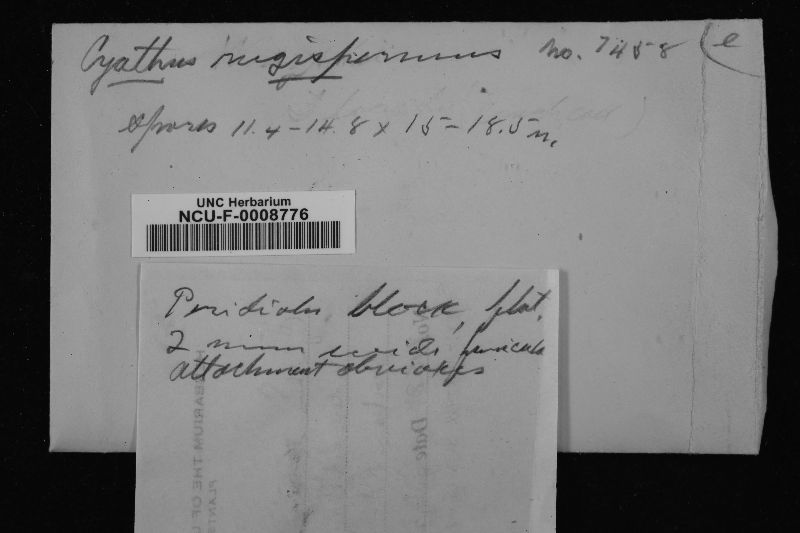 Cyathus rugispermus No. 7458 (e
Spores 11.4-14.8 x 15-18.5 m.
UNC Herbarium
NCU-F-0008776
Peridiola black, flat,
2 mm wide, funicular
attachment obvious
Date